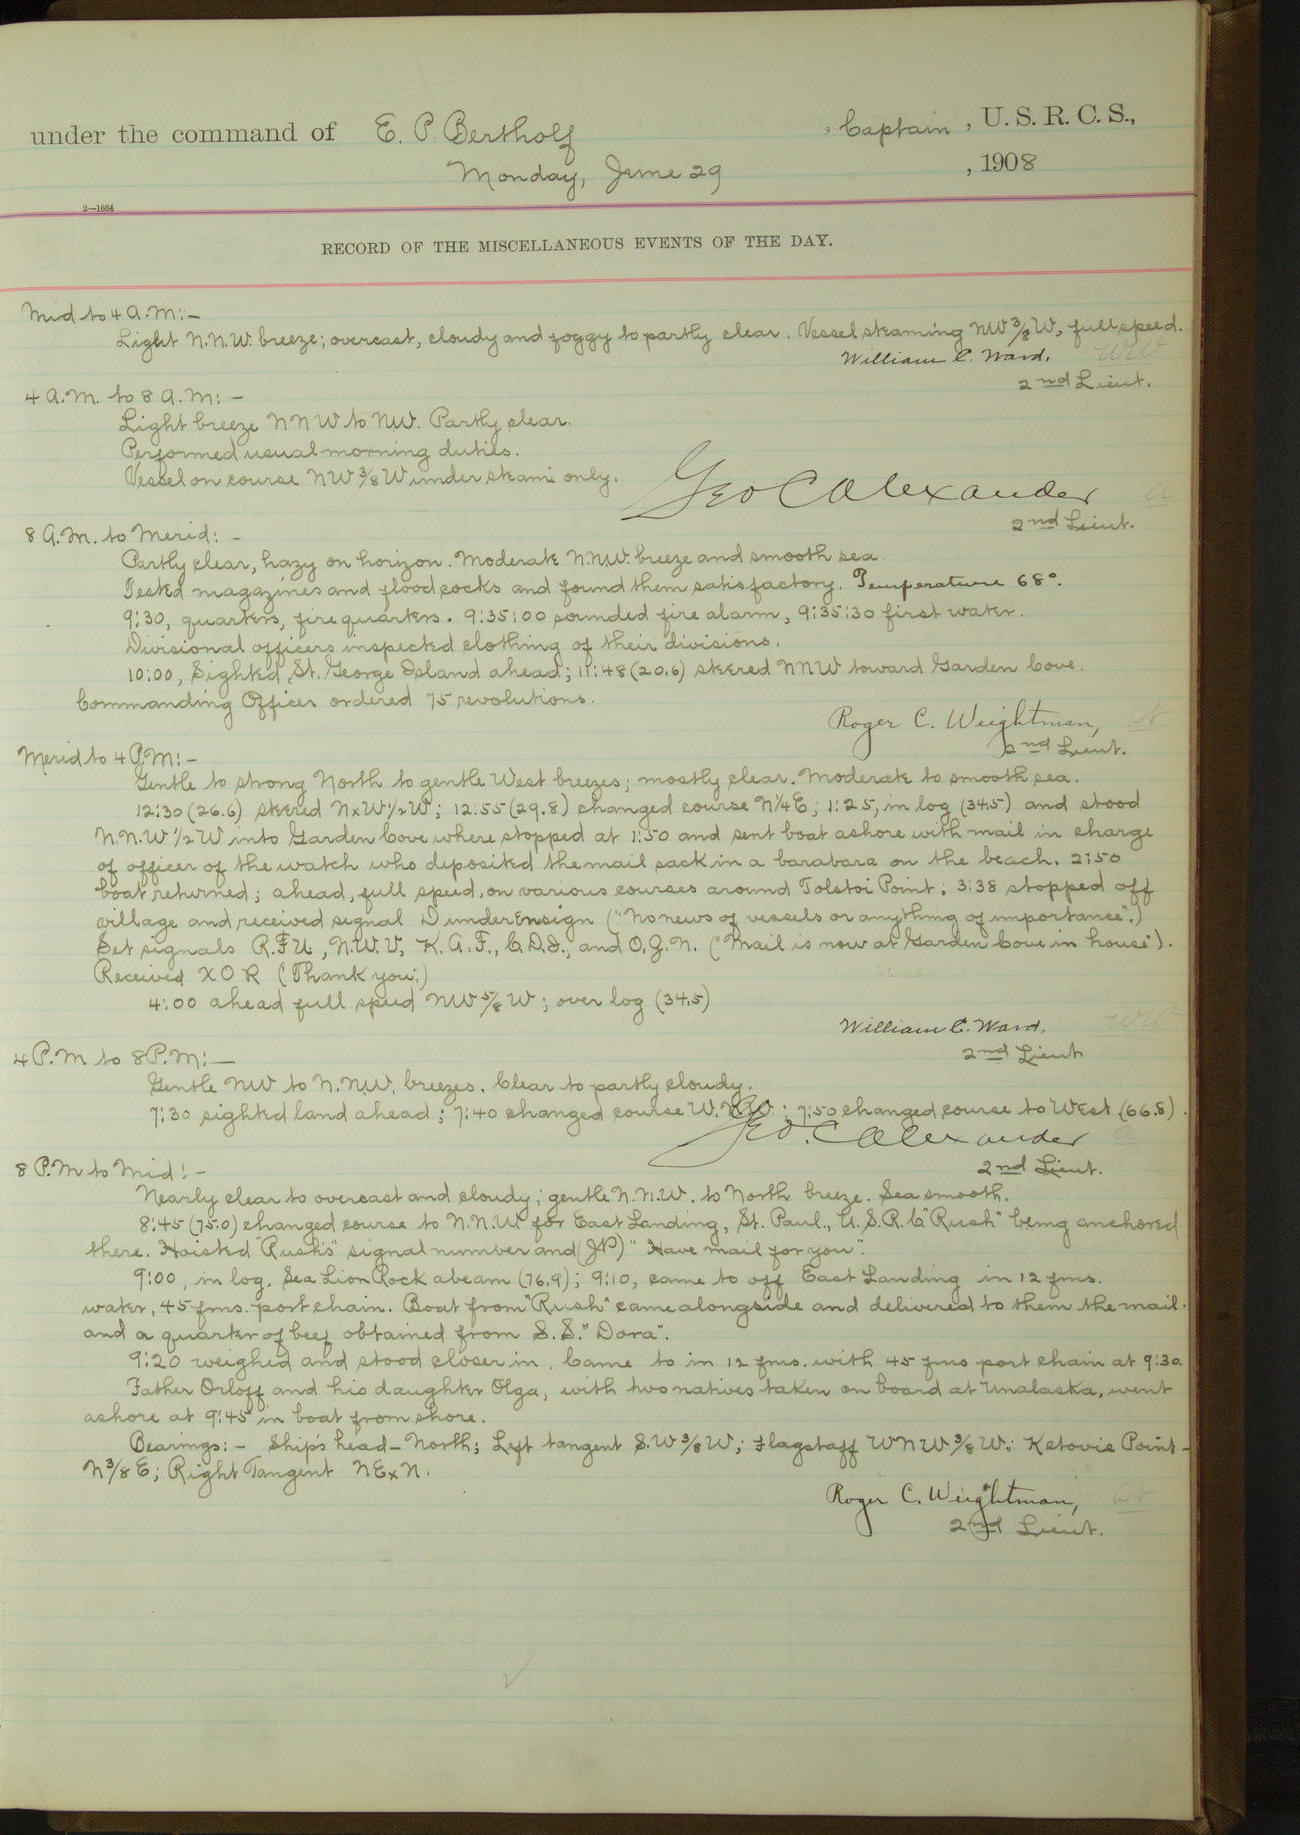 under the command of E. P. Bertholf , Captain , U. S. R. C. S.,
Monday, June 29 , 1908
2—1664
RECORD OF THE MISCELLANEOUS EVENTS OF THE DAY.
Mid to 4 A.M:-
Light N.N.W. breeze; overcast, cloudy and foggy to partly clear. Vessel steaming NW 3/8 W, full speed.
William C. Ward. WW
2nd Lieut.
4 A.M. to 8 A.M: -
Light breeze NNW to NW. Partly clear.
Performed usual morning duties.
Vessel on course NW 3/8 W under steam only.
Geo C Alexander a
2nd Lieut.
8 A.M. to Merid: -
Partly clear, hazy on horizon. Moderate N.NW. breeze and smooth sea.
Tested magazines and floodcocks and found them satisfactory. Temperature 68°.
9:30, quarters, fire quarters. 9:35:00 sounded fire alarm, 9:35:30 first water.
Divisional officers inspected clothing of their divisions.
10:00, Sighted St. George Island ahead; 11:48 (20.6) steered NNW toward Garden Cove.
Commanding Officer ordered 75 revolutions.
Roger C. Weightman,
2nd Lieut.
Merid to 4 P.M:-
Gentle to strong North to gentle West breezes; mostly clear. Moderate to smooth sea.
12:30 (26.6) steered NxW 1/2 W; 12:55 (29.8) changed course N 1/4 E; 1:25, in log (34.5) and stood
N.N.W 1/2 W into Garden Cove where stopped at 1:50 and sent boat ashore with mail in charge
of officer of the watch who deposited the mail sack in a barabara on the beach. 2:50
boat returned; ahead, full speed, on various courses around Tolstoi Point; 3:38 stopped off
village and received signal D under Ensign ("No news of vessels or anything of importance".)
Set signals R.F.U, N.W.V, K.A.F., C.D.I., and O.J.N. ("Mail is now at Garden Cove in house").
Received X O R ("Thank you".)
4:00 ahead full speed NW 5/8 W; over log (34.5)
William C. Ward. WW
2nd Lieut
4 P.M to 8 P.M:—
Gentle NW to N.NW. breezes. Clear to partly cloudy.
7:30 sighted land ahead; 7:40 changed course W.NW.; 7:50 changed course to West (66.8).
Geo. C Alexander a
2nd Lieut.
8 P.M to Mid: -
Nearly clear to overcast and cloudy; gentle N.N.W. to North breeze. Sea smooth.
8:45 (75.0) changed course to N.N.W for East Landing, St. Paul., U.S.R.C "Rush" being anchored
there. Hoisted "Rush's" signal number and (JP) "Have mail for you".
9:00, in log. Sea Lion Rock abeam (76.9); 9:10, came to off East Landing in 12 fms.
water, 45 fms. port chain. Boat from "Rush" came alongside and delivered to them the mail
and a quarter of beef obtained from S.S. "Dora".
9:20 weighed and stood closer in. Came to in 12 fms. with 45 fms port chain at 9:30.
Father Orloff and his daughter Olga, with two natives taken on board at Unalaska, went
ashore at 9:45 in boat from shore.
Bearings: - Ship's head - North; Left tangent S.W 3/8 W; Flagstaff WNW 3/8 W; Ketovie Point -
N 3/8 E; Right Tangent NExN.
Roger C. Weightman,
2nd Lieut.